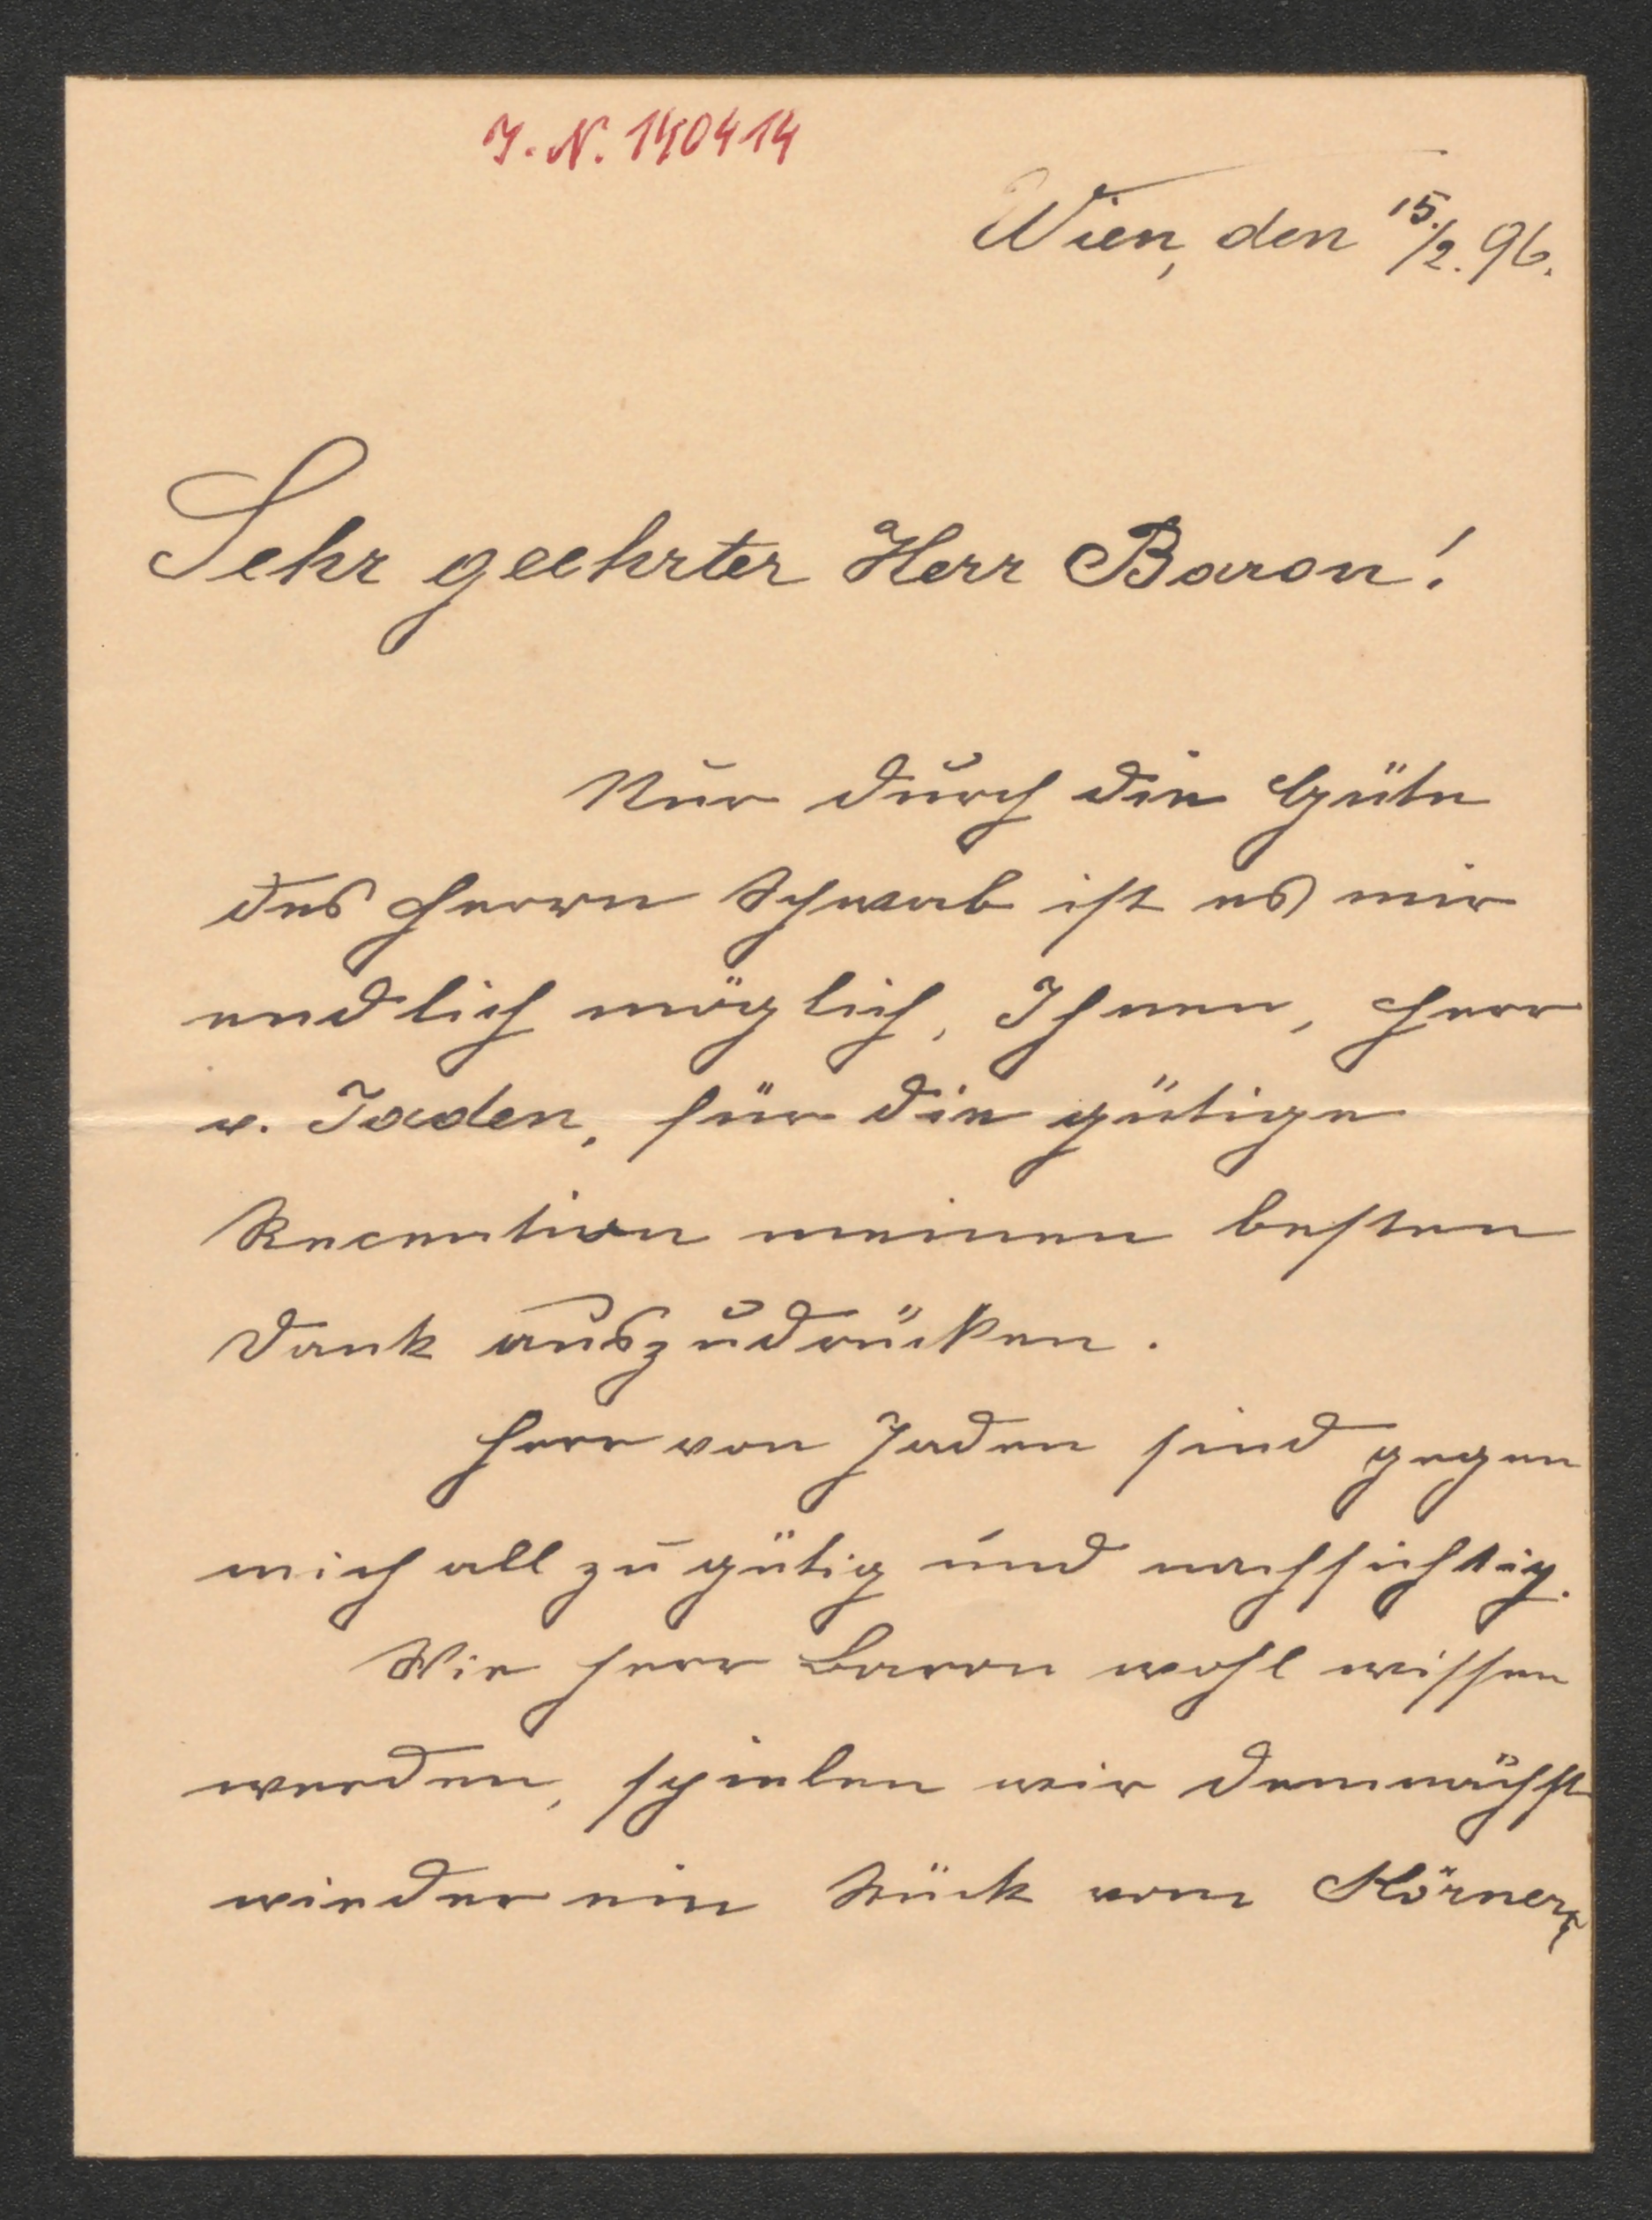 J. N. 140414
Wien, den 15./2. 96.
Sehr geehrter Herr Baron!
Nur durch die Güte
des Herrn Schwab ist es mir
endlich möglich, Ihnen, Herr
v. Jaden, für die gütige
Recention meinen besten
Dank auszudrücken.
Herr von Jaden sind gegen
mich all zu gütig und nachsichtig.
Wie Herr Baron wohl wissen
werden, spielen wir demnächst
wieder ein Stück vom Körner,